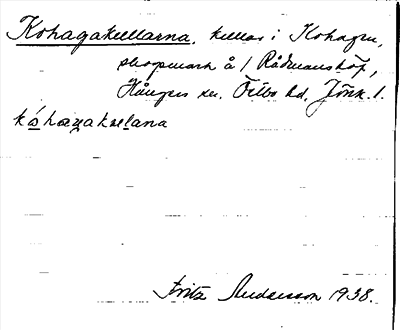 Kohagakullarna, kullar i Kohagen,
skogsmark å 1 Rådmanshöp,
Hångers sn. Östbo hd. Jönk. l.
kóhagakulana
Fritz Andersson 1938.